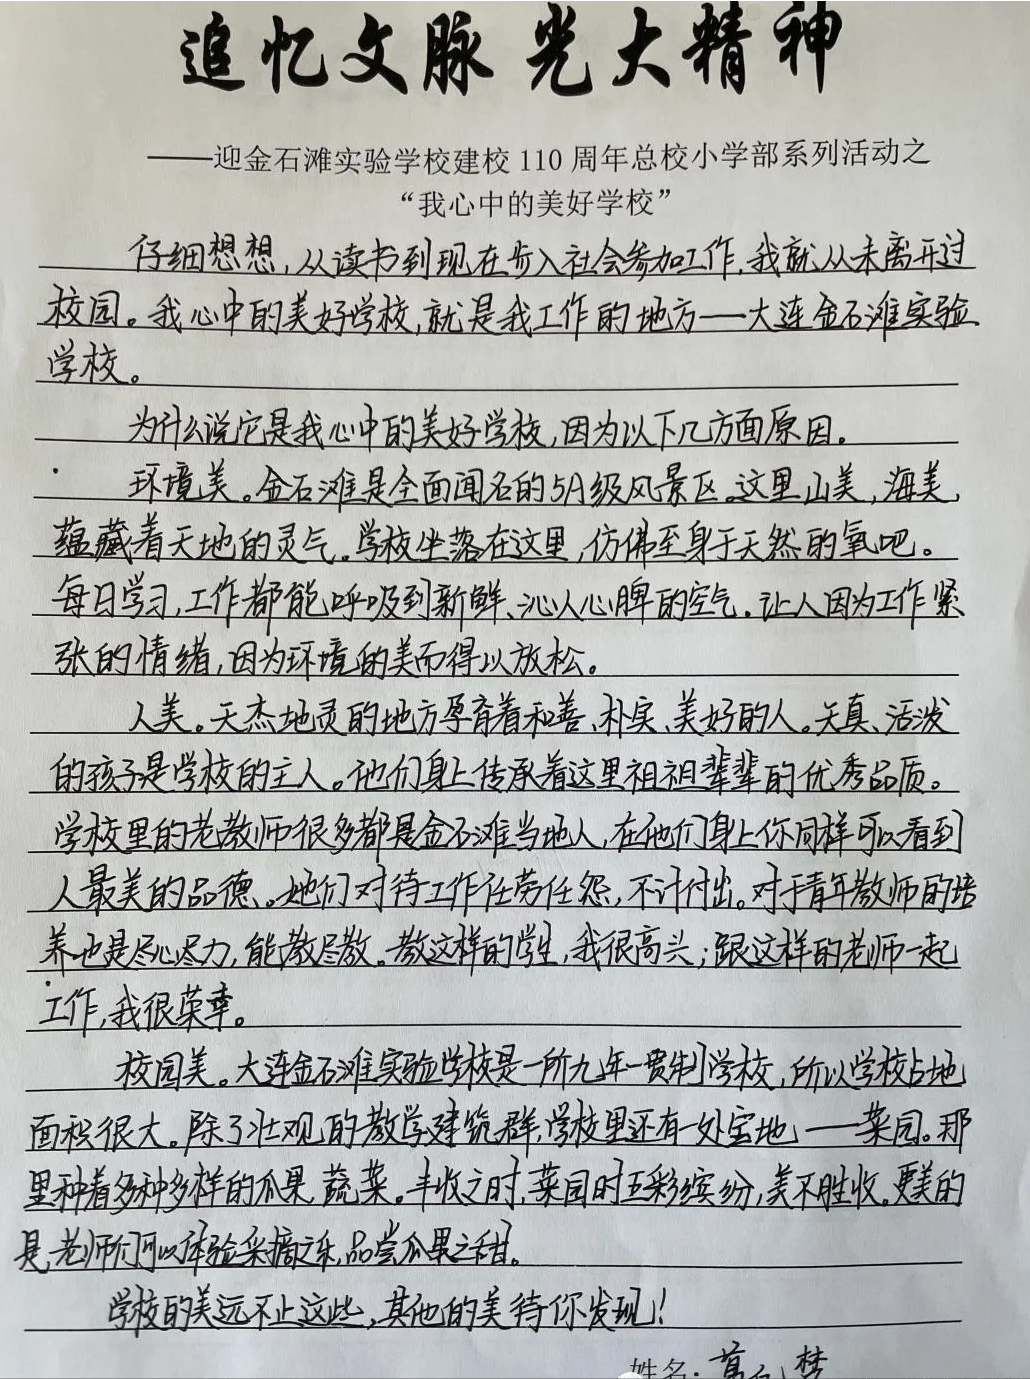 追忆文脉 光大精神
——迎金石滩实验学校建校 110 周年总校小学部系列活动之
“我心中的美好学校”
仔细想想,从读书到现在步入社会参加工作,我就从未离开过
校园。我心中的美好学校,就是我工作的地方——大连金石滩实验
学校。
为什么说它是我心中的美好学校,因为以下几方面原因。
环境美。金石滩是全面闻名的5A级风景区。这里山美,海美,
蕴藏着天地的灵气。学校坐落在这里,仿佛至身于天然的氧吧。
每日学习,工作都能呼吸到新鲜、沁人心脾的空气。让人因为工作紧
张的情绪,因为环境的美而得以放松。
人美。天杰地灵的地方孕育着和善、朴实、美好的人。天真、活泼
的孩子是学校的主人。他们身上传承着这里祖祖辈辈的优秀品质。
学校里的老教师很多都是金石滩当地人,在他们身上你同样可以看到
人最美的品德。她们对待工作任劳任怨,不计付出。对于青年教师的培
养也是尽心尽力,能教尽教。教这样的学生,我很高头;跟这样的老师一起
工作,我很荣幸。
校园美。大连金石滩实验学校是一所九年一贯制学校,所以学校占地
面积很大。除了壮观的教学建筑群,学校里还有一处宝地——菜园。那
里种着多种多样的瓜果蔬菜。丰收之时,菜园时五彩缤纷,美不胜收。更美的
是,老师们可以体验采摘之乐,品尝瓜果之甜。
学校的美远不止这些,其他的美待你发现!
姓名: